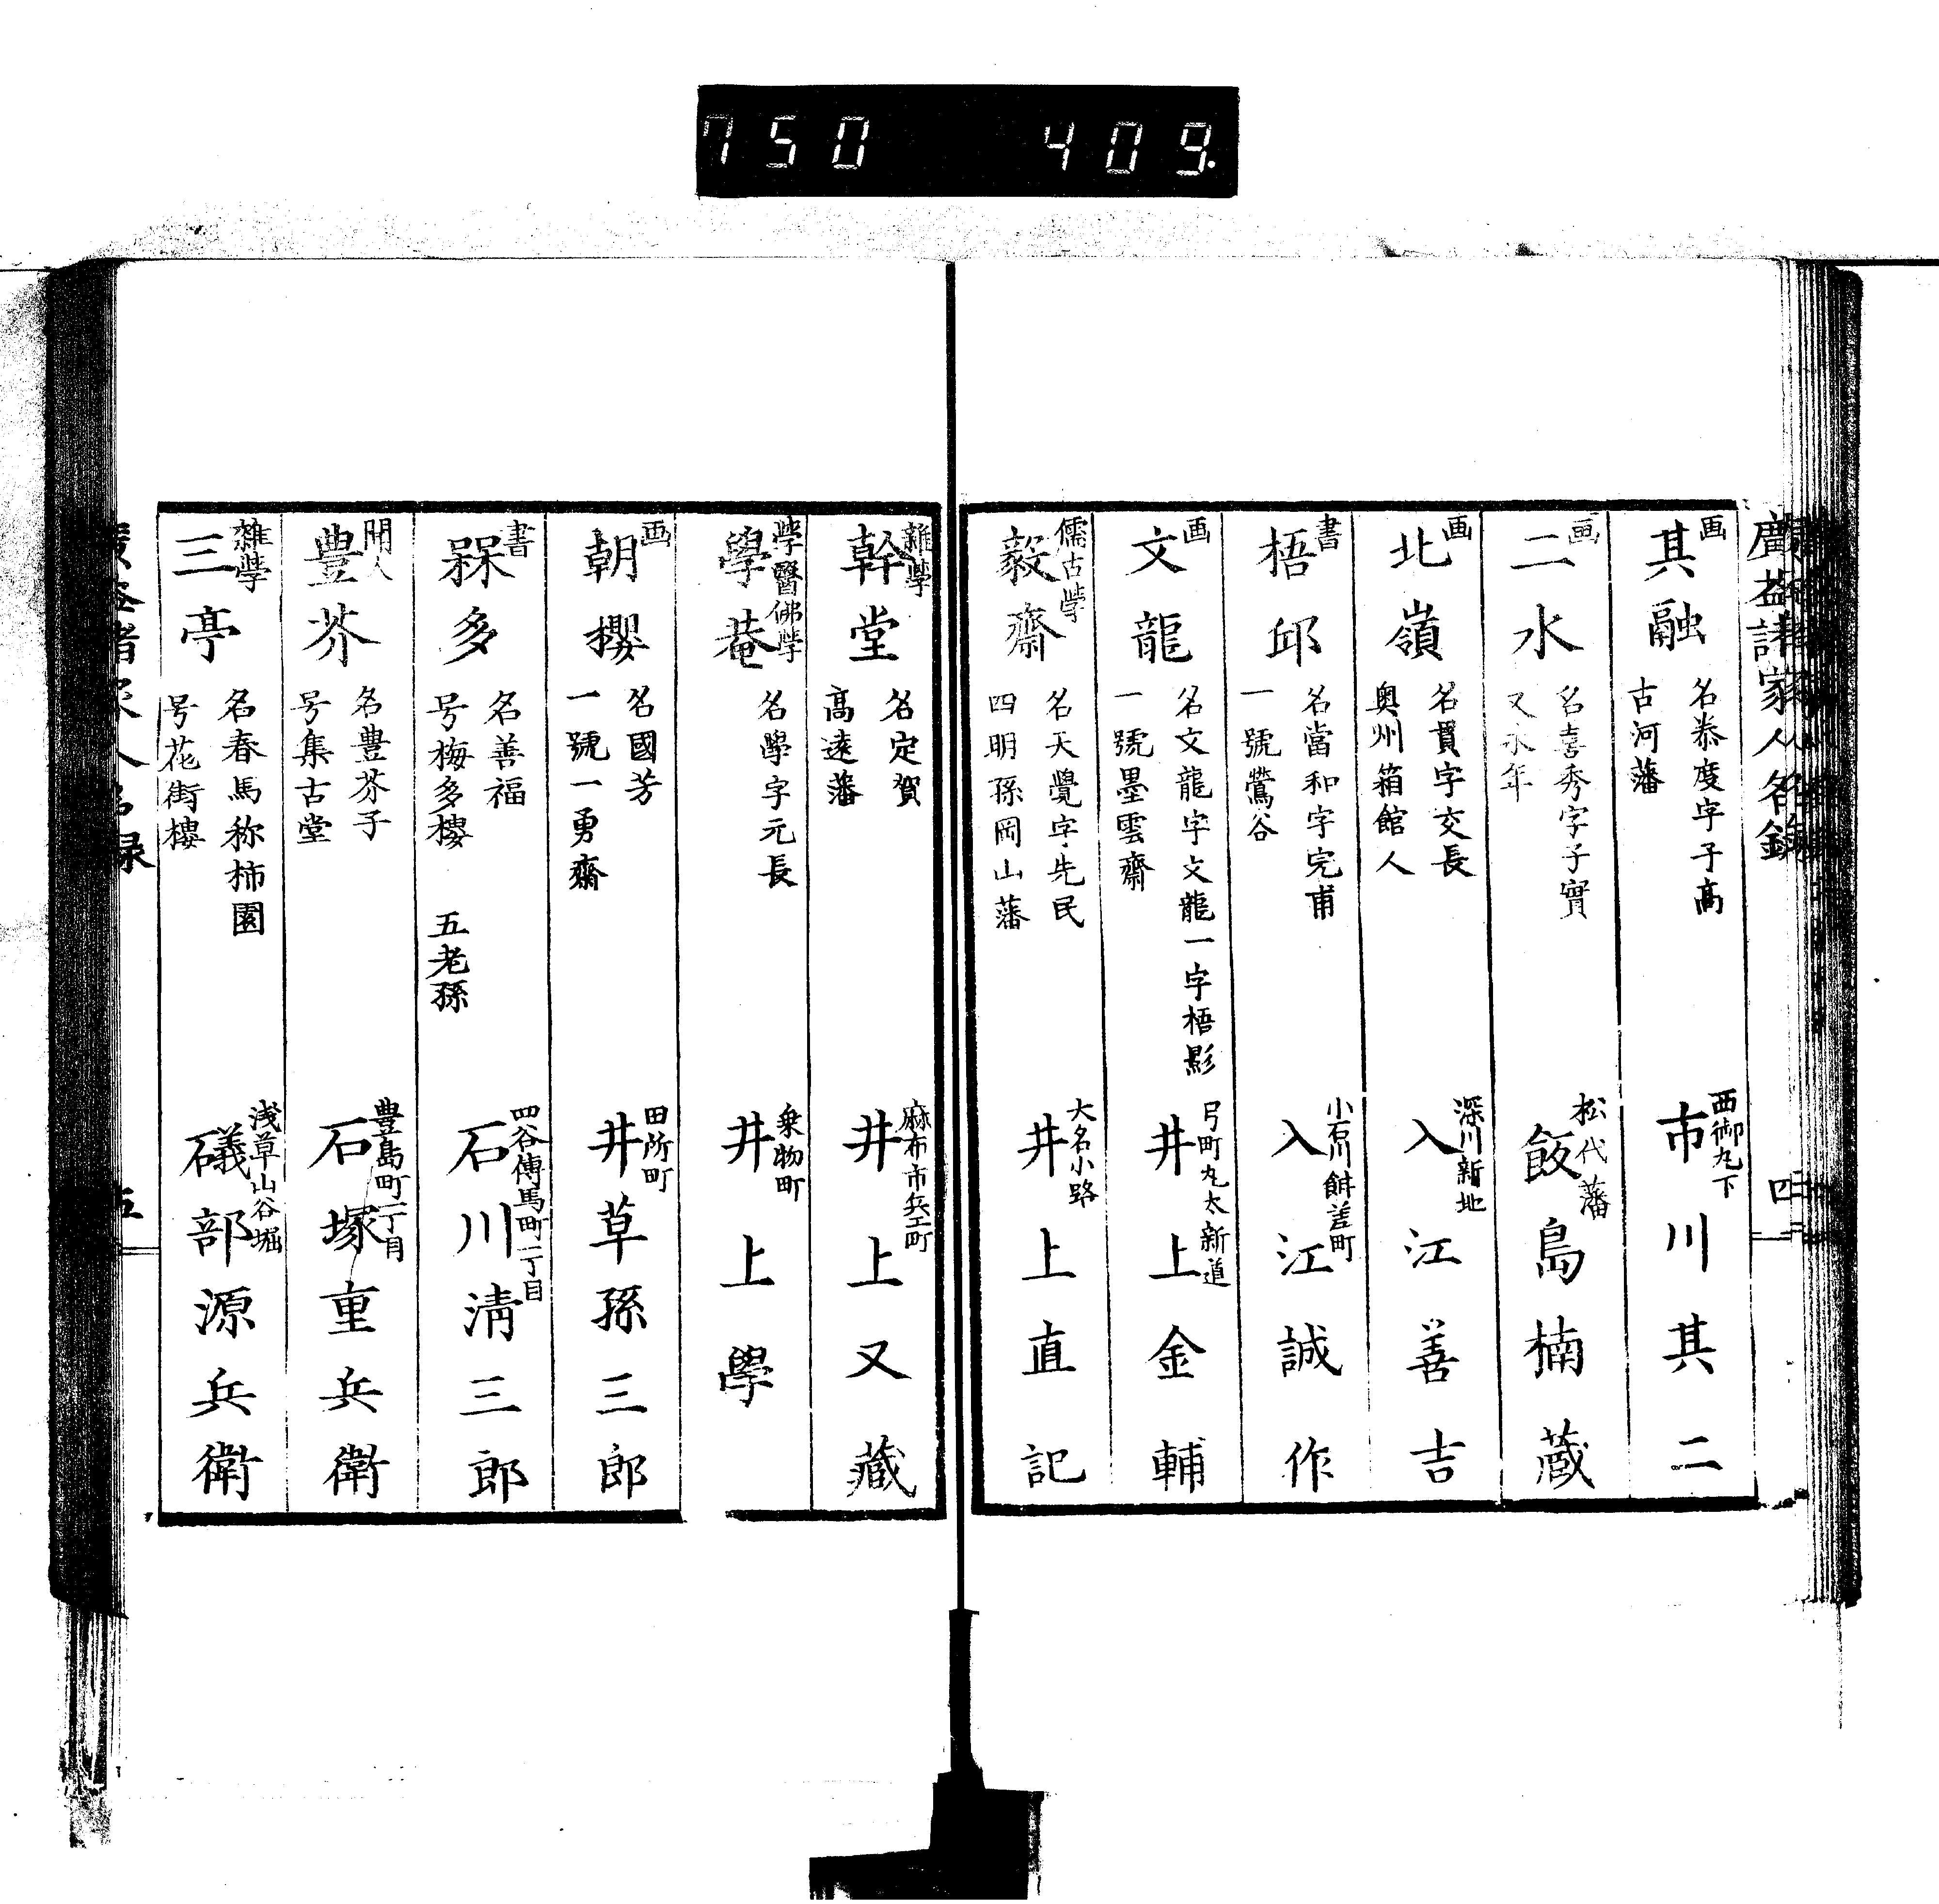 750 409.
廣益諸家人名録
四
画
其融
名恭度字子高
古河藩
西御丸下
市川其二
画
二水
名喜秀字子實
又永年
松代藩
飯島楠蔵
画
北嶺
名貫字交長
奥州箱館人
深川新地
入江善吉
書
梧邱
名當和字完甫
一號鶯谷
小石川餌差町
入江誠作
画
文龍
名文龍字文龍一字梧影
一號墨雲齋
弓町丸太新道
井上金輔
儒古学
毅齋
名天覺字先民
四明孫岡山藩
大名小路
井上直記
雜學
幹堂
名定賀
高遠藩
麻布市兵工町
井上又藏
学醫佛学
學菴
名學字元長
乗物町
井上學
画
朝櫻
名國芳
一號一勇齋
田所町
井草孫三郎
書
槑多
名善福
号梅多樓 五老孫
四谷傳馬町二丁目
石川清三郎
聞人
豊芥
名豊芥子
号集古堂
豊島町二丁目
石塚重兵衛
雜学
三亭
名春馬称柿園
号花街樓
浅草山谷堀
礒部源兵衛
五